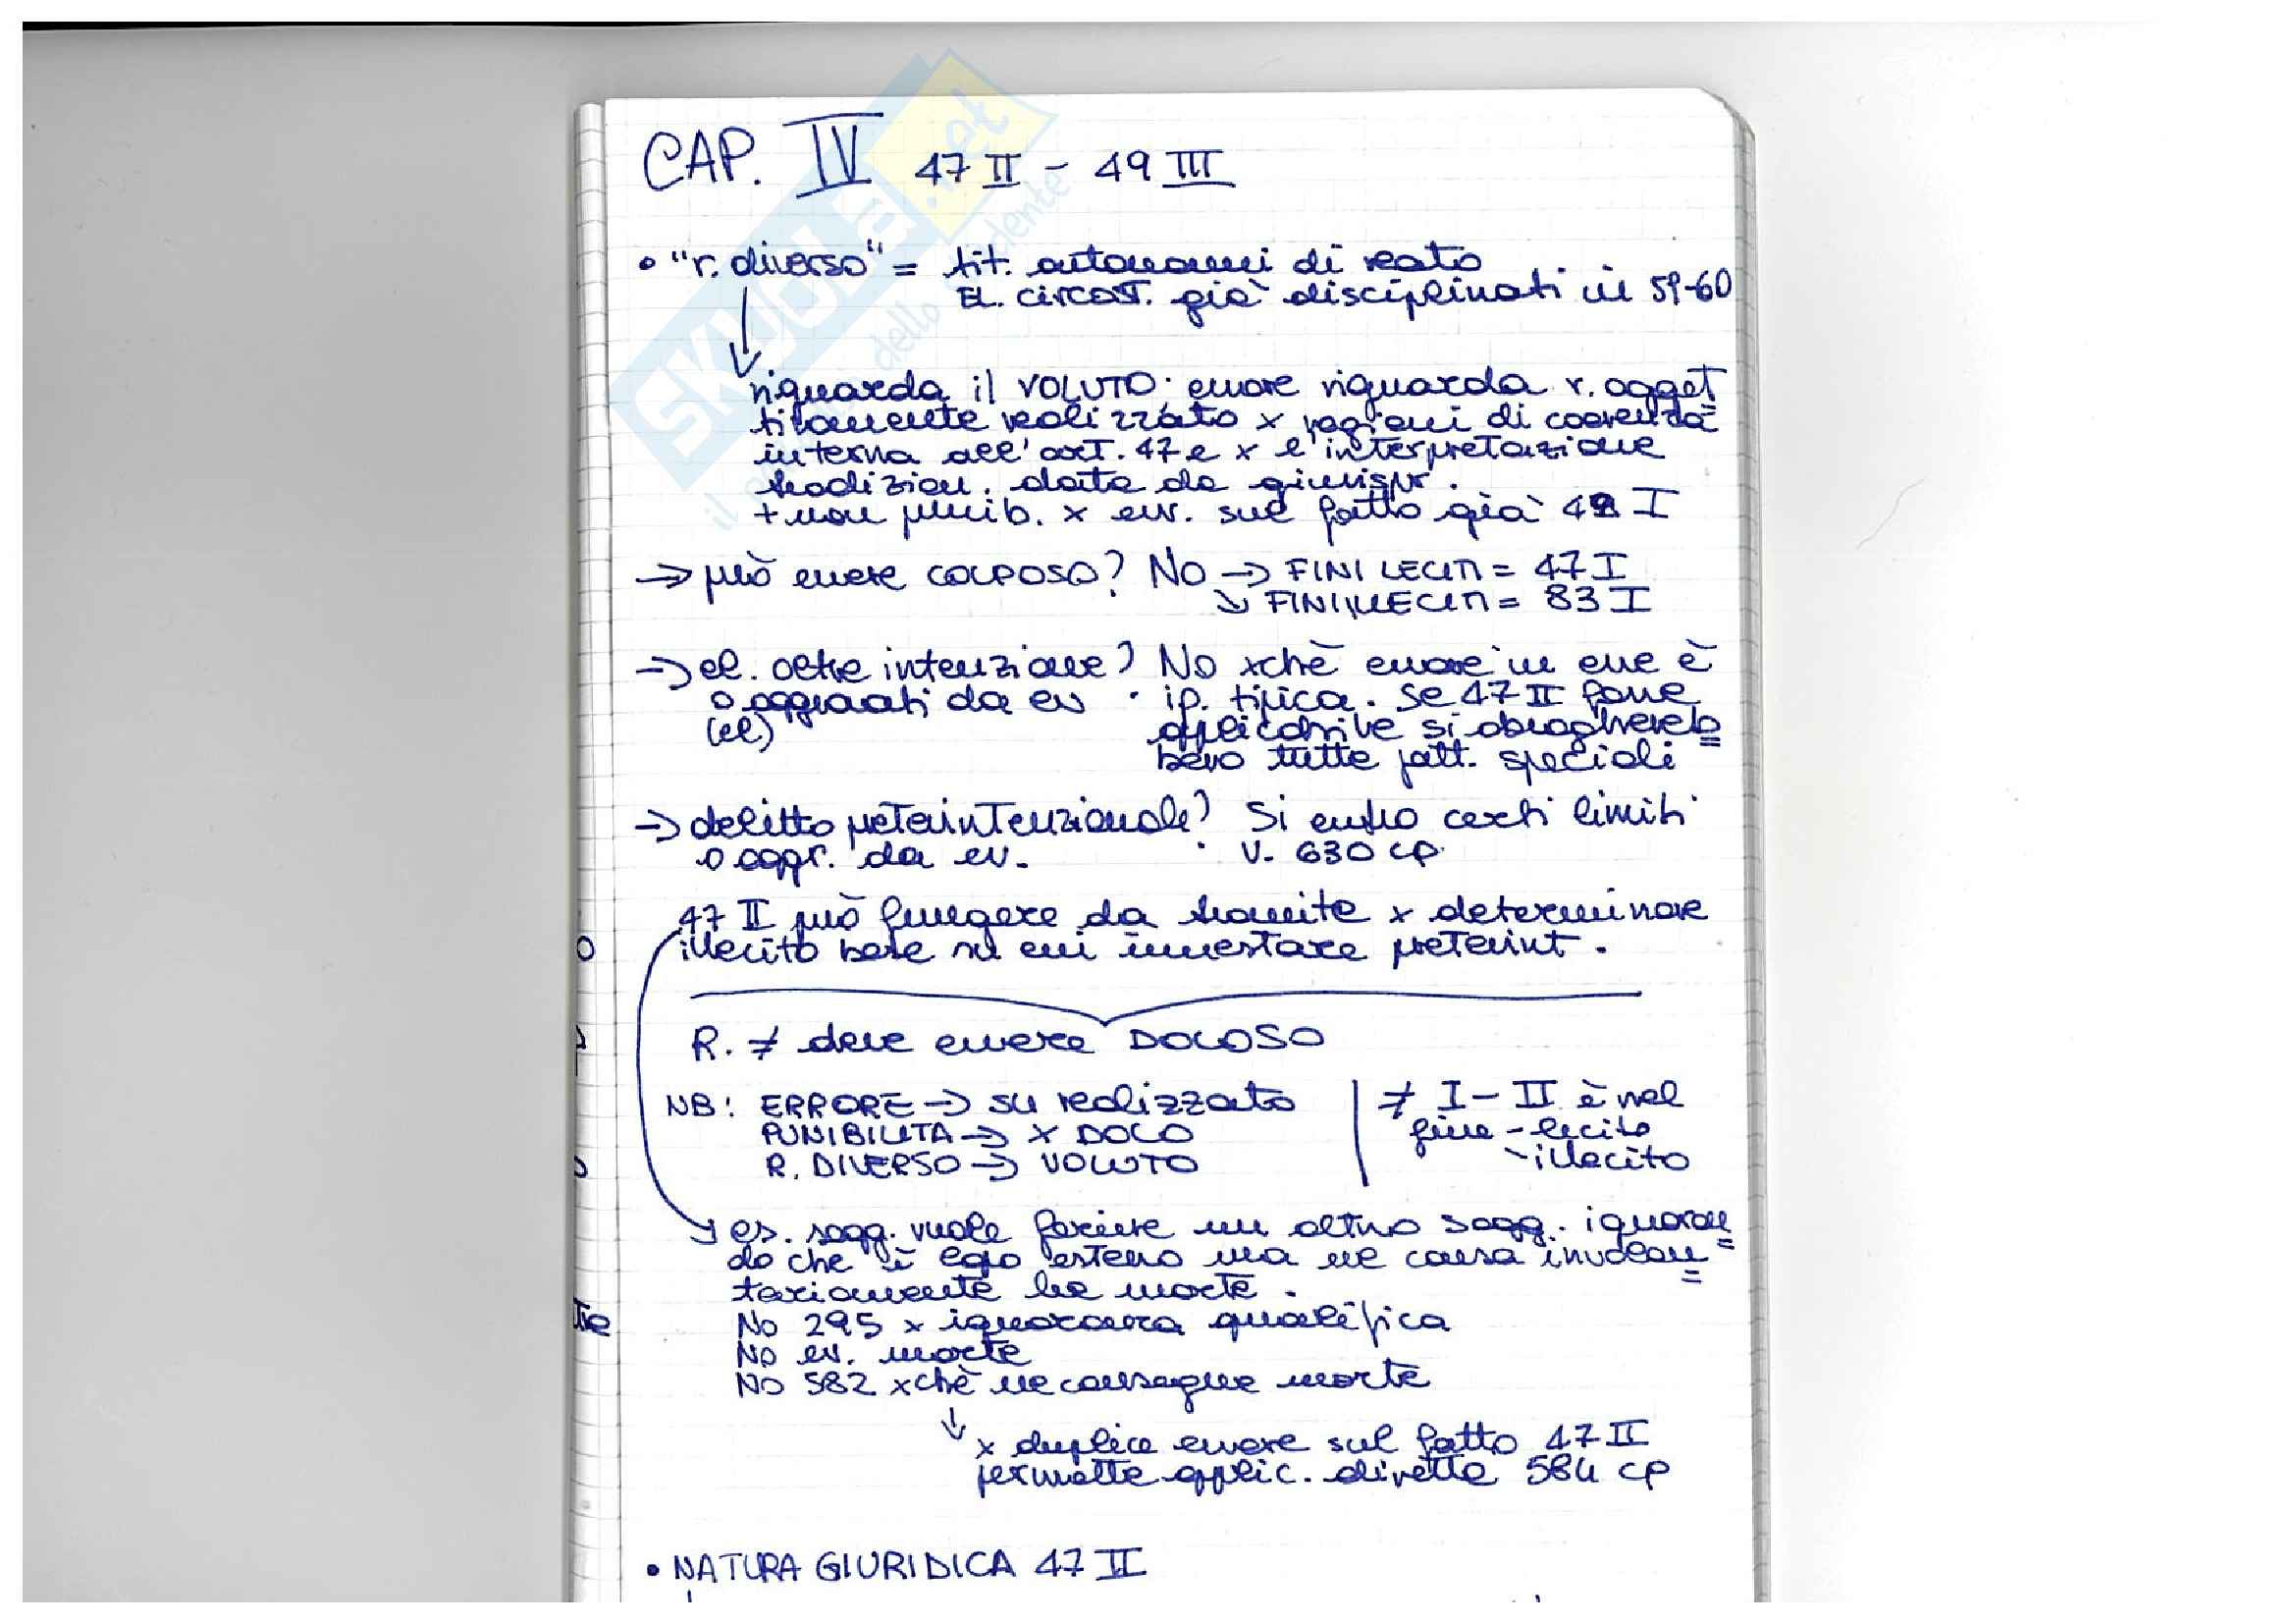 CAP. IV 47 II - 49 III
• "r. diverso" = tit. autonomi di reato
EL. circost. già disciplinati in 59-60
riguarda il VOLUTO. errore riguarda r. ogget
tivamente realizzato x ragioni di coerenza
interna all'art. 47 e x l'interpretazione
tradizion. data da giurispr.
+ non punib. x err. sul fatto già 47 I
→ può essere COLPOSO? NO → FINI LECITI = 47 I
↘ FINI ILLECITI = 83 I
→ el. oltre intenzione? No xchè errore in esse è
o aggravati da ev. ip. tipica. Se 47 II fosse
(el) applicabile si abrogherebbero
bero tutte fatt. speciali
→ delitto preterintenzionale? Si entro certi limiti
o aggr. da ev. v. 630 cp.
47 II può fungere da tramite x determinare
illecito base su cui innestare preterint.
R. ≠ deve essere DOLOSO
NB: ERRORE → su realizzato
PUNIBILITA → X DOLO
R. DIVERSO → VOLUTO
≠ I - II è nel
fine - lecito
- illecito
es. sogg. vuole ferire un altro sogg. ignoran=
do che è capo estero ma ne causa involon=
tariamente la morte.
No 295 x ignoranza qualifica
No ev. morte
No 582 xchè ne consegue morte
↓
x duplice errore sul fatto 47 II
permette applic. diretta 584 cp
• NATURA GIURIDICA 47 II
tre
SKUOLA.net
dello studente